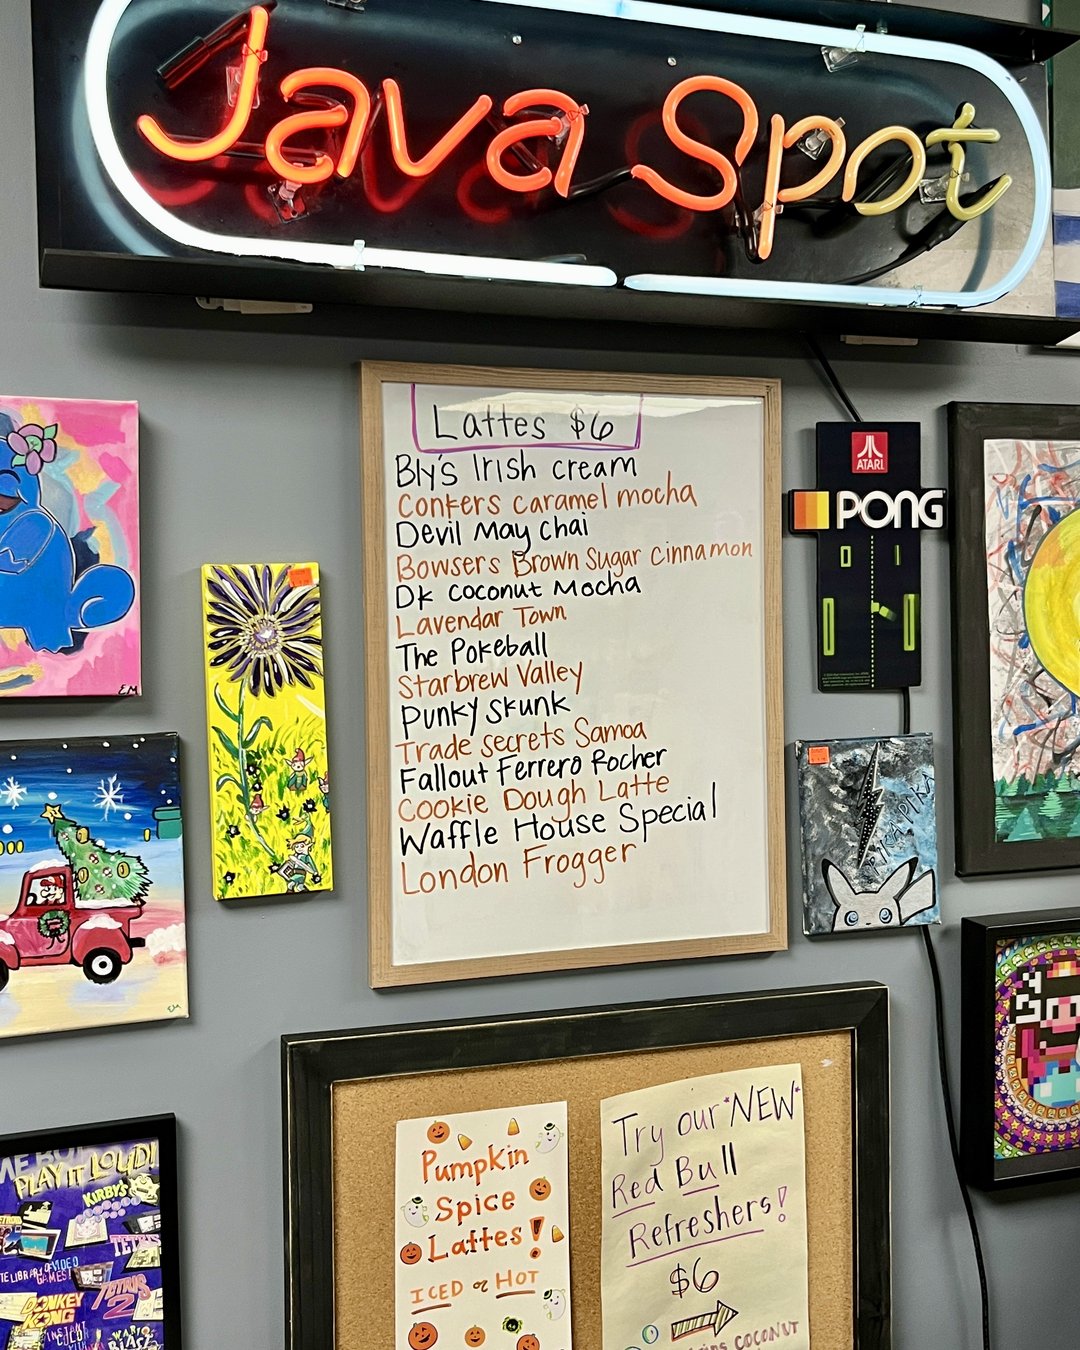 Java Spot
Lattes $6
Bly's Irish cream
Conkers caramel mocha
Devil May Chai
Bowsers Brown Sugar Cinnamon
DK Coconut Mocha
Lavendar Town
The Pokeball
Starbrew Valley
Punky Skunk
Trade secrets Samoa
Fallout Ferrero Rocher
Cookie Dough Latte
Waffle House Special
London Frogger
ATARI
PONG
EM
EM
PIKA
PLAY IT LOUD!
KIRBY'S
TETRIS
DONKEY
KONG
TETRIS
2
WARIO
BLAST
Pumpkin
Spice
Lattes!
ICED or HOT
Try our *NEW*
Red Bull
Refreshers!
$6
COCONUT